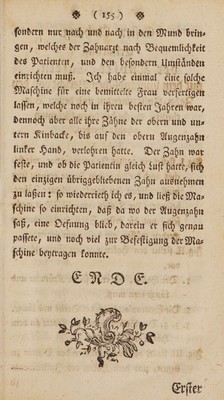 ( 155 )
sondern nur nach und nach in den Mund brin-
gen, welches der Zahnarzt nach Bequemlichkeit
des Patienten, und den besondern Umständen
einrichten muß. Ich habe einmal eine solche
Maschine für eine bemittelte Frau verfertigen
lassen, welche noch in ihren besten Jahren war,
dennoch aber alle ihre Zähne der obern und un-
tern Kinbacke, bis auf den obern Augenzahn
linker Hand, verlohren hatte. Der Zahn war
feste, und ob die Patientin gleich Lust hatte, sich
den einzigen übriggebliebenen Zahn ausnehmen
zu laßen: so wiederrieth ich es, und ließ die Ma-
schine so einrichten, daß da wo der Augenzahn
saß, eine Oefnung blieb, darein er sich genau
passete, und noch viel zur Befestigung der Ma-
schine beytragen konnte.
ENDE.
Erster